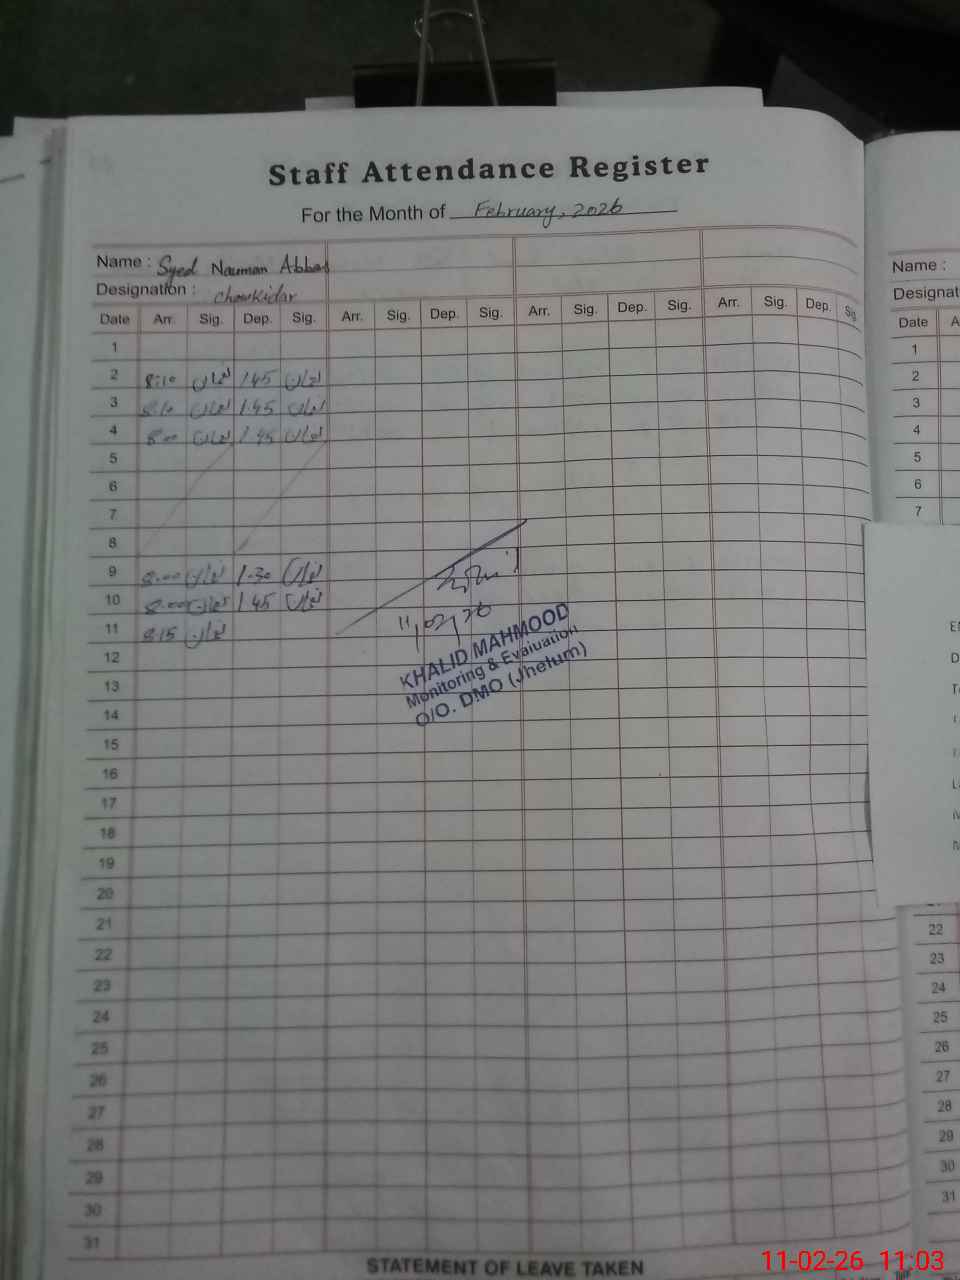 Staff Attendance Register
For the Month of February, 2026
Name : Syed Nauman Abbas
Designation : Chowkidar
Date Arr. Sig. Dep. Sig. Arr. Sig. Dep. Sig. Arr. Sig. Dep. Sig. Arr. Sig. Dep. Sig.
1
2 8:10 نعمان 1.45 نعمان
3 8:10 نعمان 1.45 نعمان
4 8:00 نعمان 1.45 نعمان
5
6
7
8
9 8:00 نعمان 1.30 نعمان
10 8:00 نعمان 1.45 نعمان
11 8:15 نعمان
11/02/26
KHALID MAHMOOD
Monitoring & Evaluation
O/O. DMO (Jhelum)
12
13
14
15
16
17
18
19
20
21
22
23
24
25
26
27
28
29
30
31
STATEMENT OF LEAVE TAKEN
Name :
Designat
Date A
1
2
3
4
5
6
7
22
23
24
25
26
27
28
29
30
31
11-02-26 11:03